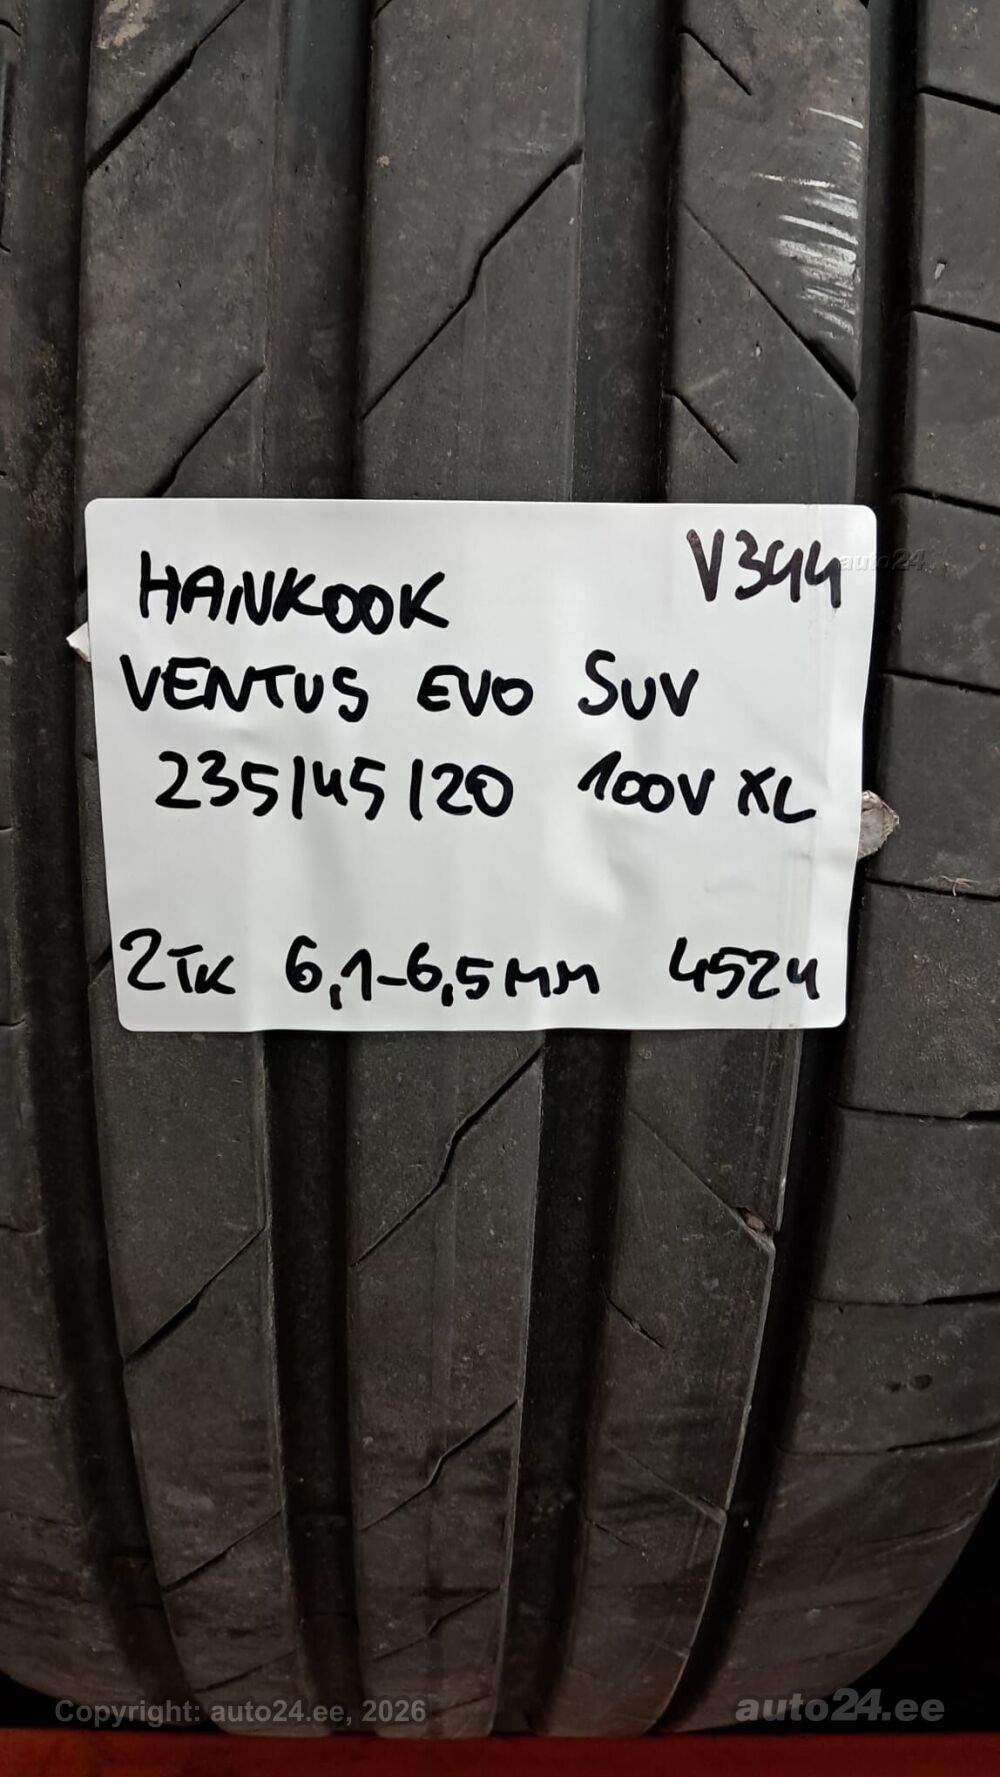 V344
HANKOOK
VENTUS EVO SUV
235/45/20 100V XL
2TK 6,1-6,5MM 4524
auto24.
Copyright: auto24.ee, 2026
auto24.ee